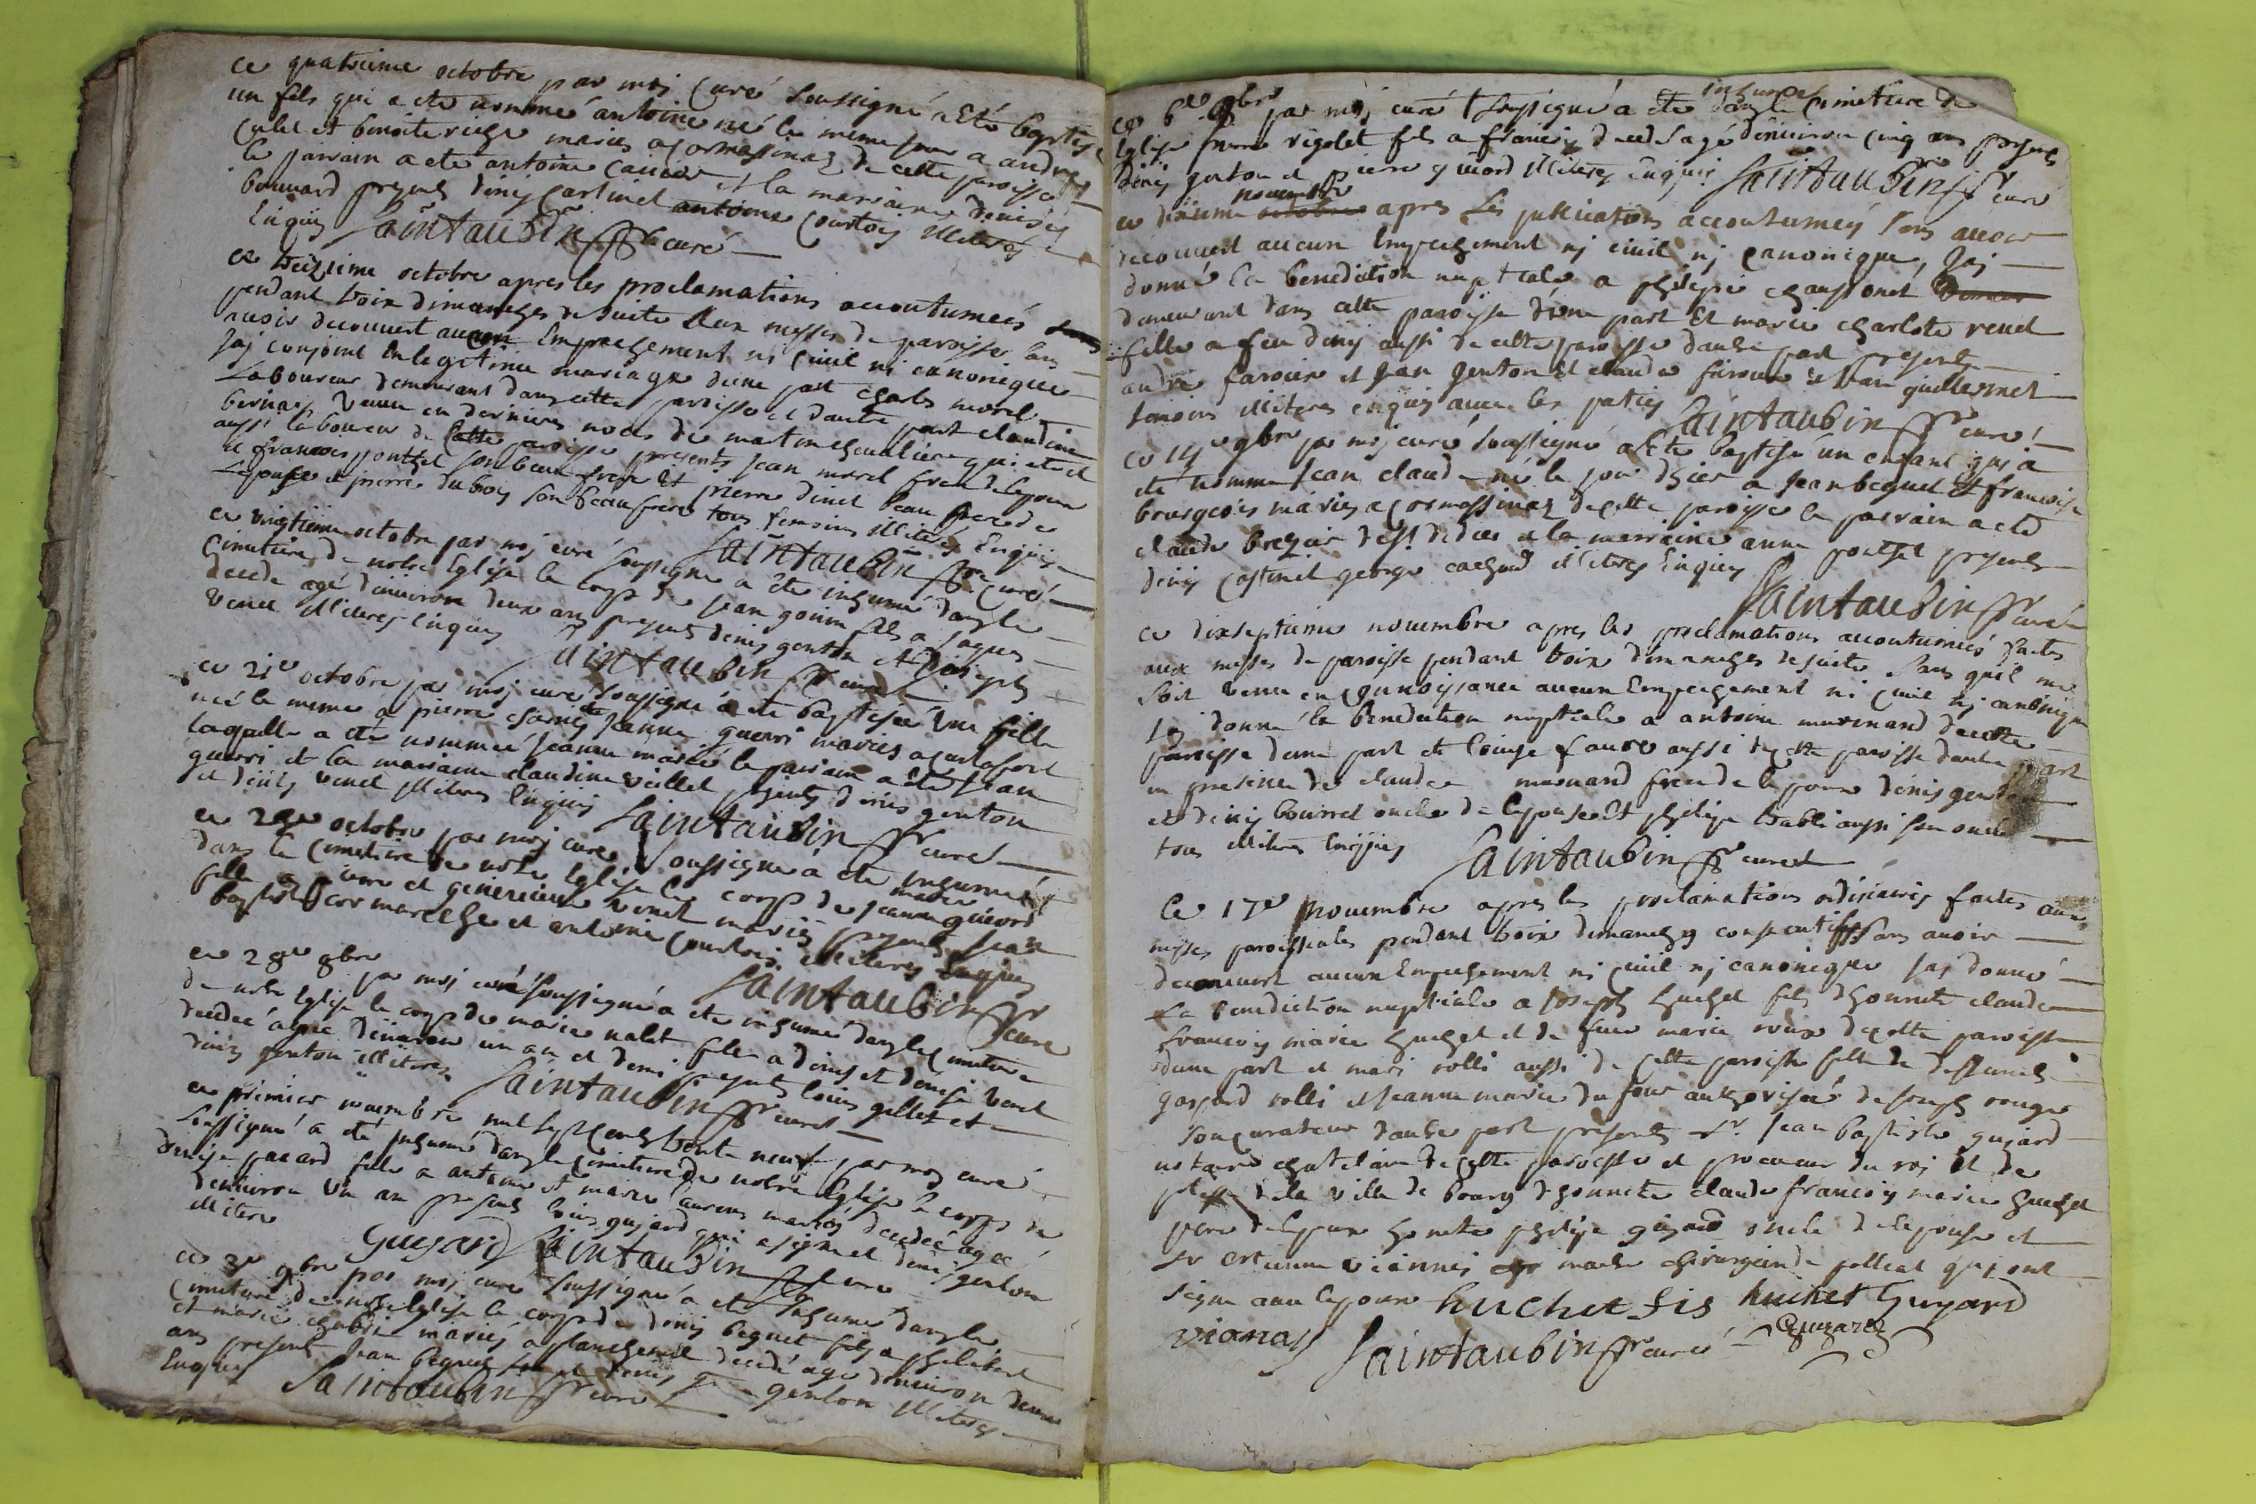 ce quatrieme octobre par moi curé soussigné a Eté baptisé
un fils qui a ete nommé antoine né le meme jour a andré
et benoite mariés a cormassinaz de cette paroisse
le parrain a ete antoine et la marraine denise
bouvard presents denis Cartinel antoine Courtois illiteres
Enquis Saintaubin ff curé
ce treizieme octobre apres les proclamations accoutumeés
pendant trois dimanches de suite aux messes de paroisse sans
avoir decouvert aucun Empechement ni Civil ni canonique
jaj conjoint en legitime mariage dune part charles morel
Laboureur demeurant dans cette paroisse et dautre part claudine
bernas veuve en dernieres noces de martin chevaliere qui
aussi laboureur de cette paroisse presents jean morel frere de lepoux
et francois ponthet son beau frere Et pierre denet beau frere de
Lepouse et pierre dubois son beau frere tous temoins illiteres Enquis
Saintaubin ff curé
ce vingtieme octobre par moj curé soussigné a été inhumé dans le
Cimetiere de notre Eglise le corps de jean gonin fils a jaques
decede agé denviron deux ans presents denis genton et joseph
venet illiteres enquis Saintaubin ff curé
ce 21e octobre par moj curé soussigné a ete baptisée une fille
neé le meme a pierre et jeanne guerri mariés a curtafort
laquelle a eté nommeé jeanne marie le parrain a eté jean
guerri et la marraine claudine veillet presents denis genton
et denis venet illiteres Enquis Saintaubin ff curé
ce 24e octobre par moj curé soussigné a eté inhumée
dans le cimetiere de notre Eglise le corps de jeanne marie guerd
fille a pierre et genevieve venet mariés presents jean
baptiste cormareche et antoine courtois illiteres Enquis
Saintaubin ff curé
ce 28e 8bre par moj curé soussigné a ete inhumé dans le cimetiere
de notre Eglise le corps de marie nalet fille a denis et denise venet
decedeé ageé denviron un an et demi presents louis gillet et
denis genton illiteres Saintaubin ff curé
ce premier novembre mil sept cents trente neuf par moj curé
soussigné a eté inhumé dans le cimetiere de notre Eglise le corps de
denise pacard fille a antoine et marie laurens mariés decedeé ageé
denviron un an presents louis gujard qui a signé et denis genton
illitere Gujard Saintaubin ff curé
ce 3e 9bre par moj curé soussigné a eté inhumé dans le
Cimetiere de notre Eglise le corps de denis beguet fils a philibert
et marie chabri mariés a planchemel decedé agé denviron deux
ans presents jean beguet et denis genton illiteres
Enquis Saintaubin ff curé
ce 6e 9bre par moj curé soussigné a ete inhumé dans le cimetiere de
Eglise pierre rigolet fils a francois decedé agé denviron cinq ans presents
denis genton et pierre guiord illiteres Enquis Saintaubin ff curé
ce dixieme octobre novembre apres les publications accoutumeés sans avoir
decouvert aucun Empechement nj civil nj canonique, jaj
donné la benediction nuptiale a philipe chaussonet
demeurant dans cette paroisse d'une part Et marie charlote venet
fille a feu denis aussi de cette paroisse dautre part presents
andré faroier et jean genton Et claude faroier et jean guillermet
temoins illiteres enquis avec les parties Saintaubin ff curé
ce 14e 9bre par moj curé soussigné a Ete baptisé un enfant qui a
eté nommé jean claude né le jour dhier a jean beguet Et francoise
bourgeois mariés a cormassinaz de cette paroisse le parrain a eté
claude brezier de st didier et la marraine anne ponthet presents
denis Castinel george cachod illiteres Enquis
Saintaubin ff curé
ce dixseptieme novembre apres les proclamations accoutumeés faites
aux messes de paroisse pendant trois dimanches de suite sans quil me
soit venu en connoissance aucun Empechement ni civil nj canonique
jaj donné la benediction nuptiale a antoine musenand de cette
paroisse dune part et louise faure aussi de cette paroisse dautre part
en presence de claude musnand frere de lepoux denis genton
et denis bourret oncle de lepouse Et philipe trabli aussi son oncle
tous illiteres Enquis Saintaubin ff curé
Ce 17e novembre apres les proclamations ordinaires faites aux
messes paroissiales pendant trois dimanches consecutifs sans avoir
decouvert aucun Empechement ni civil nj canonique jaj donné
La benediction nuptiale a joseph huchet fils dhonnete claude
francois marie huchet et de feue marie roux de cette paroisse
dune part et mari rolli aussi de cette paroisse fille de deffunts
gaspard rolli et jeanne marie du four authorisée de joseph rouge
son curateur dautre part presents Sr. jean baptiste gujard
notaire chatelain de cette paroisse et procureur du roj Et de
police de la ville de bourg dhonnete claude francois marie huchet
pere de lepoux honnete philipe gujard oncle de lepouse et
Sr estienne viannes maitre chirurgien de polliat qui ont
signé avec lepoux huchet fis huchet Gujard
vianas Saintaubin ff curé Gujard